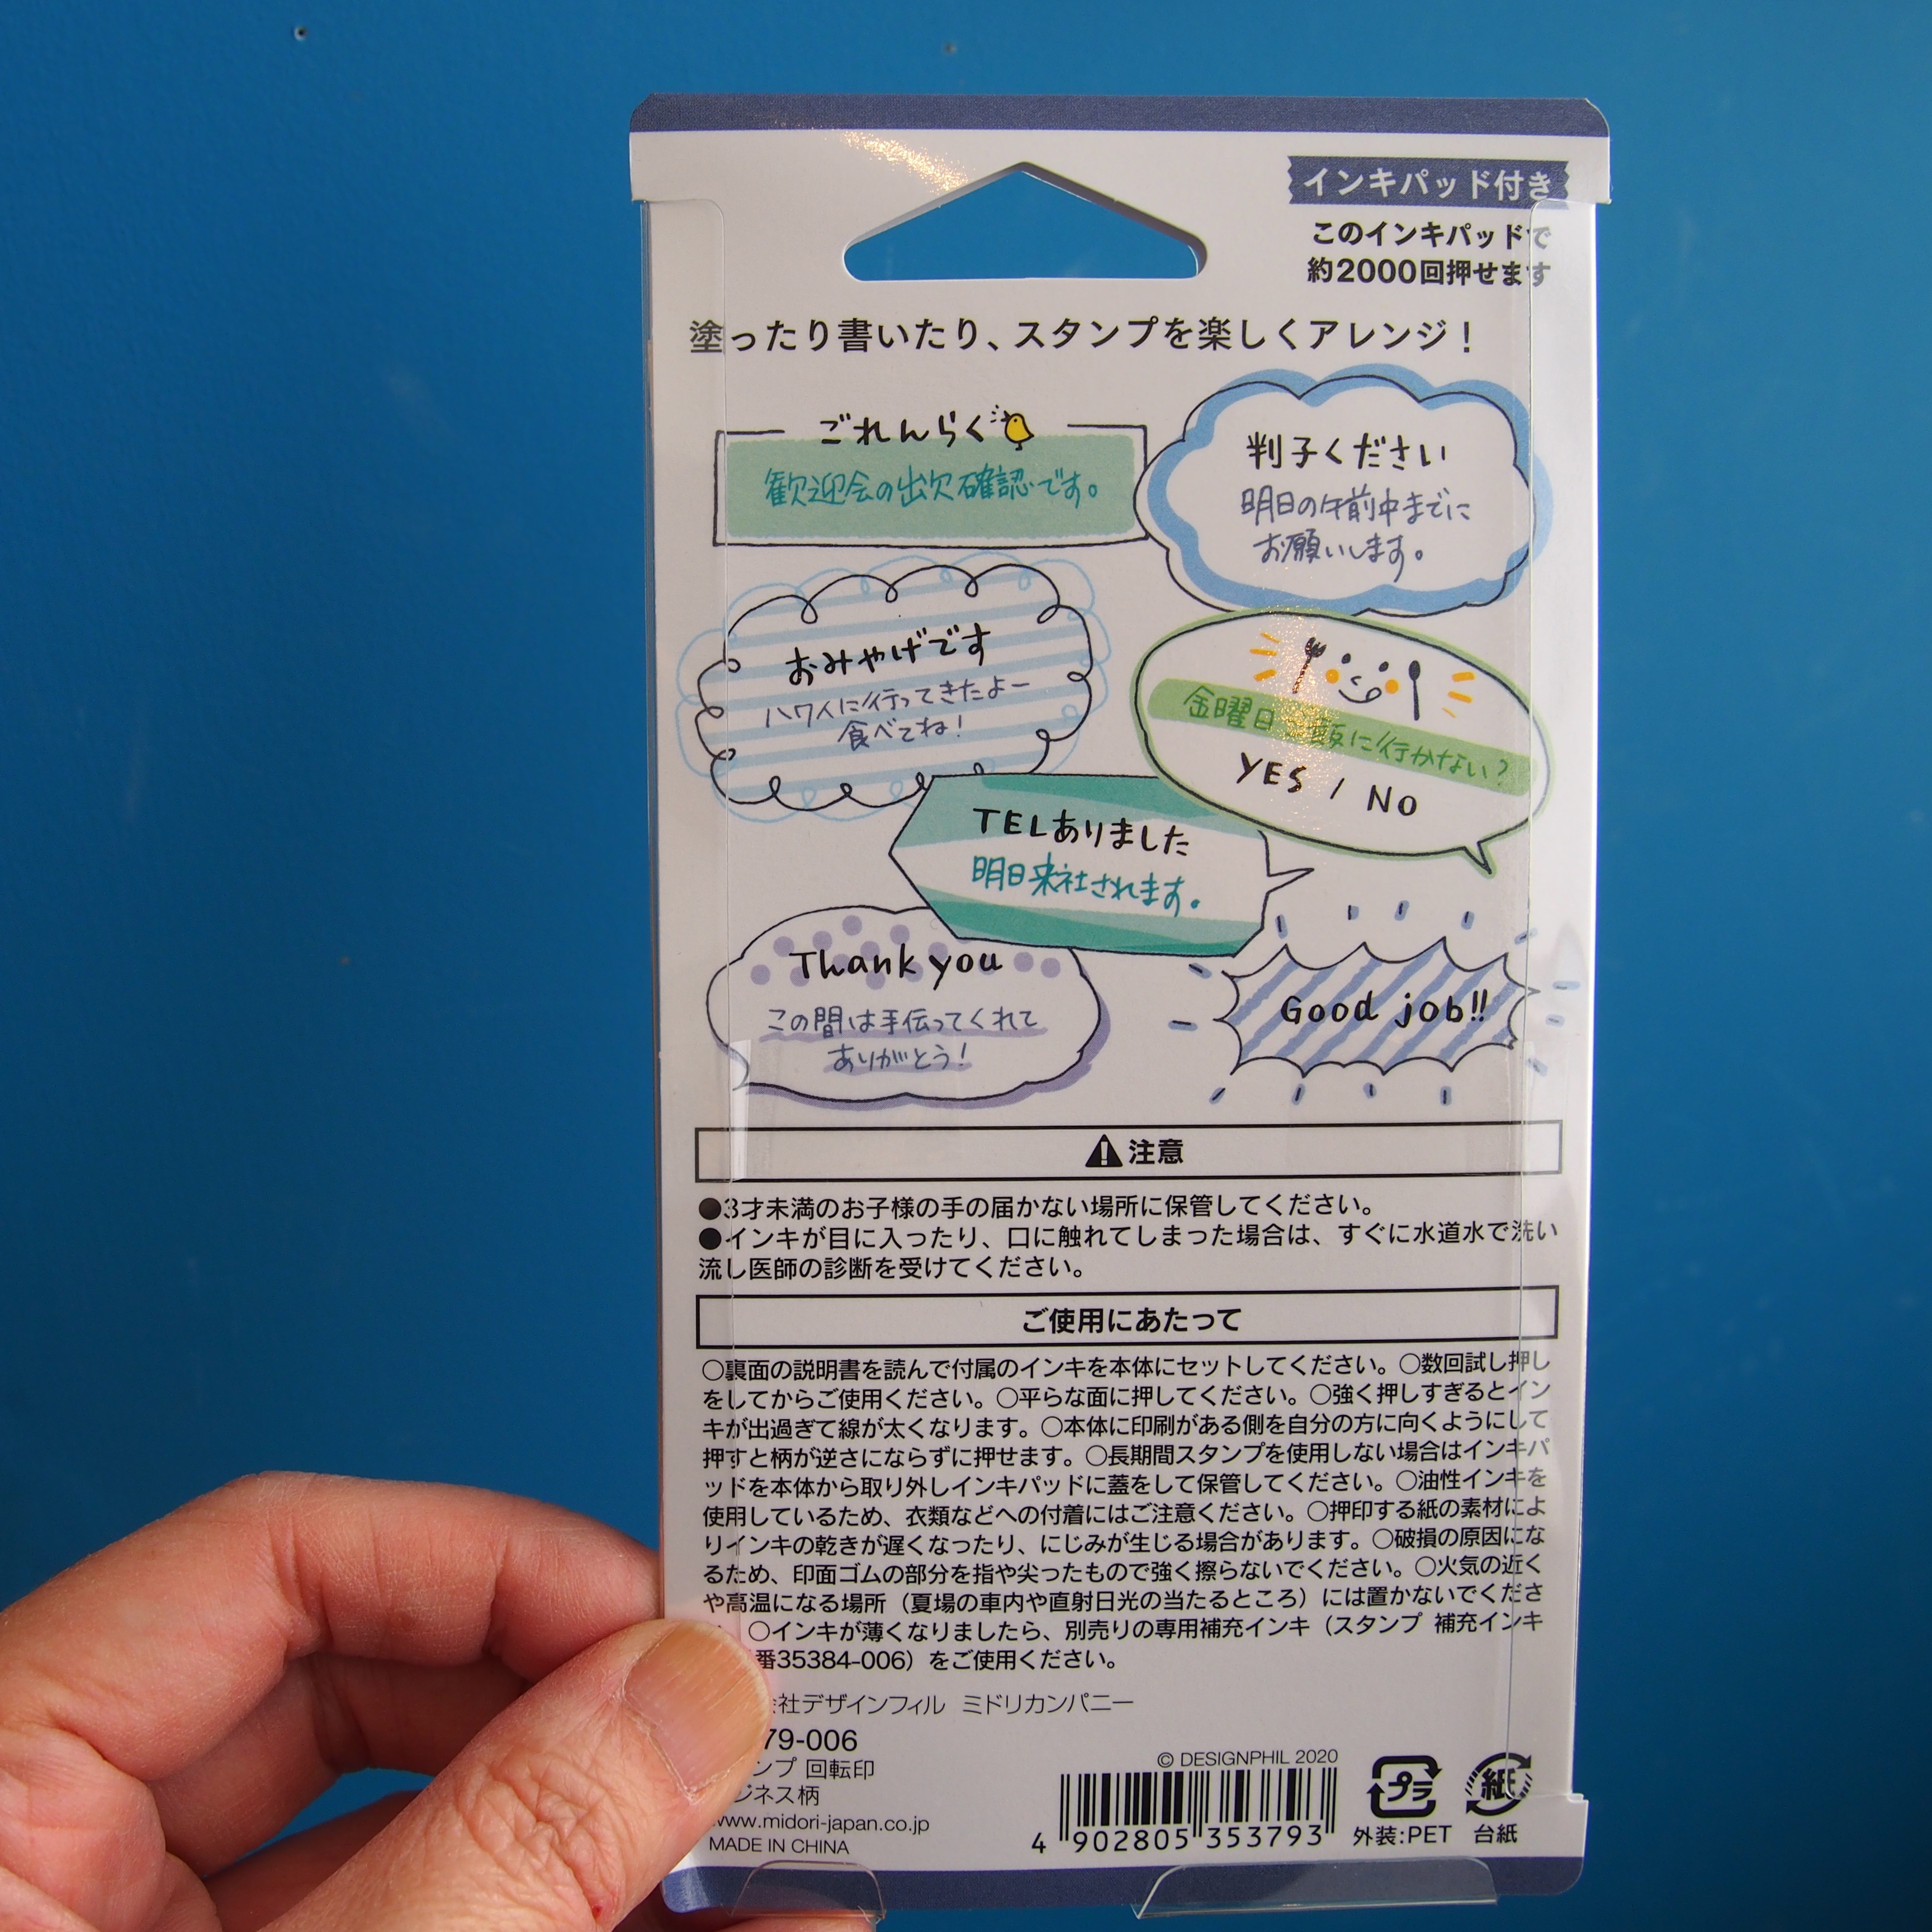 インキパッド付き
このインキパッドで
約2000回押せます
塗ったり書いたり、スタンプを楽しくアレンジ！
ごれんらく
歓迎会の出欠確認です。
判子ください
明日の午前中までに
お願いします。
おみやげです
ハワイに行ってきたよー
食べてね！
金曜日 に行かない？
YES / NO
TELありました
明日来社されます。
Thank you
この間は手伝ってくれて
ありがとう！
Good job!!
注意
●3才未満のお子様の手の届かない場所に保管してください。
●インキが目に入ったり、口に触れてしまった場合は、すぐに水道水で洗い
流し医師の診断を受けてください。
ご使用にあたって
○裏面の説明書を読んで付属のインキを本体にセットしてください。○数回試し押し
をしてからご使用ください。○平らな面に押してください。○強く押しすぎるとイン
キが出過ぎて線が太くなります。○本体に印刷がある側を自分の方に向くようにして
押すと柄が逆さにならずに押せます。○長期間スタンプを使用しない場合はインキパ
ッドを本体から取り外しインキパッドに蓋をして保管してください。○油性インキを
使用しているため、衣類などへの付着にはご注意ください。○押印する紙の素材によ
りインキの乾きが遅くなったり、にじみが生じる場合があります。○破損の原因にな
るため、印面ゴムの部分を指や尖ったもので強く擦らないでください。○火気の近く
や高温になる場所（夏場の車内や直射日光の当たるところ）には置かないでくださ
○インキが薄くなりましたら、別売りの専用補充インキ（スタンプ 補充インキ
番35384-006）をご使用ください。
社デザインフィル ミドリカンパニー
79-006
ンプ 回転印
ジネス柄
www.midori-japan.co.jp
MADE IN CHINA
© DESIGNPHIL 2020
4 902805 353793
プラ
外装:PET
紙
台紙